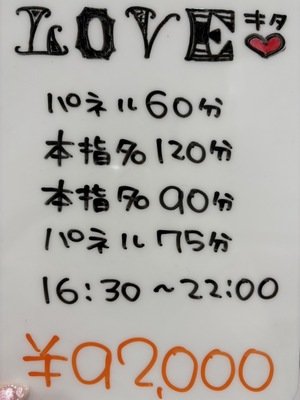 LOVE キタ
パネル60分
本指名120分
本指名90分
パネル75分
16:30〜22:00
¥92,000